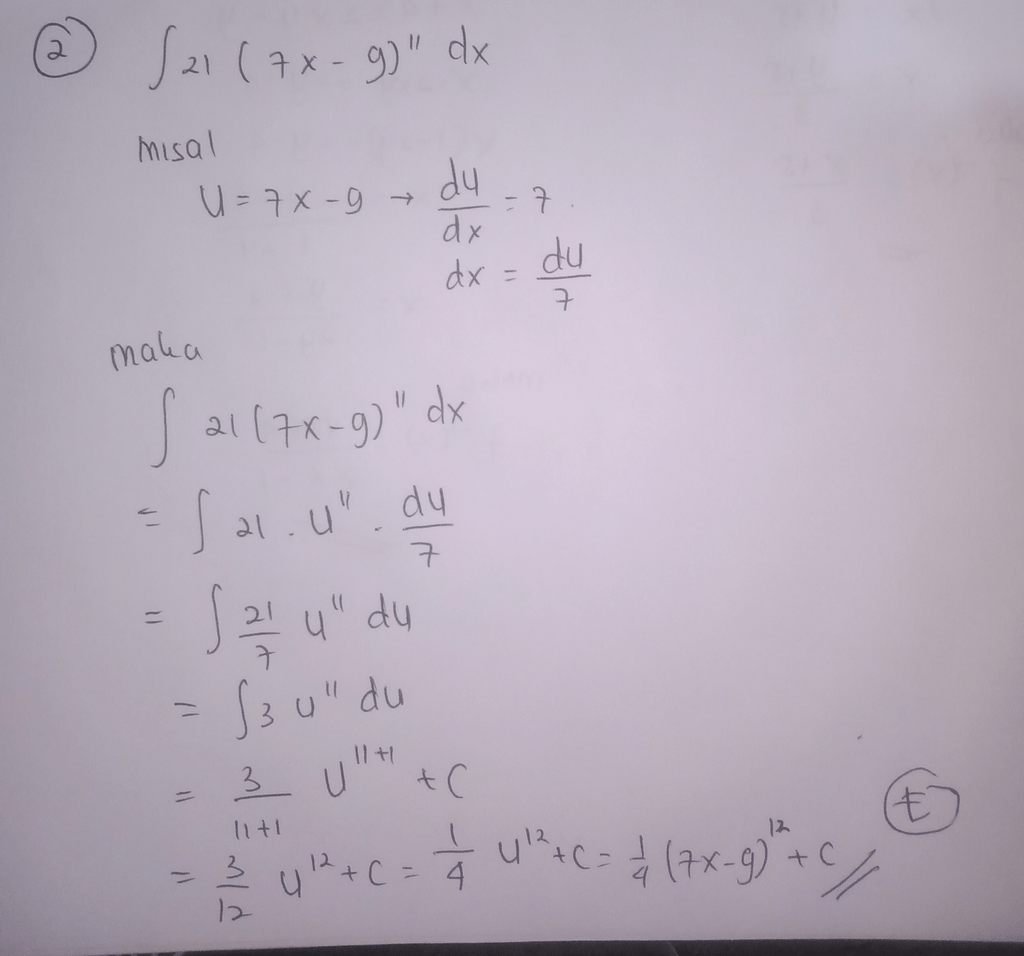 ② ∫ 21 (7x - 9)¹¹ dx
misal
U = 7x - 9 → du/dx = 7
dx = du/7
maka
∫ 21 (7x - 9)¹¹ dx
= ∫ 21 . u¹¹ . du/7
= ∫ 21/7 u¹¹ du
= ∫ 3 u¹¹ du
= 3/(11+1) U¹¹⁺¹ + C
= 3/12 u¹² + C = 1/4 u¹² + C = 1/4 (7x-9)¹² + C // Ⓔ